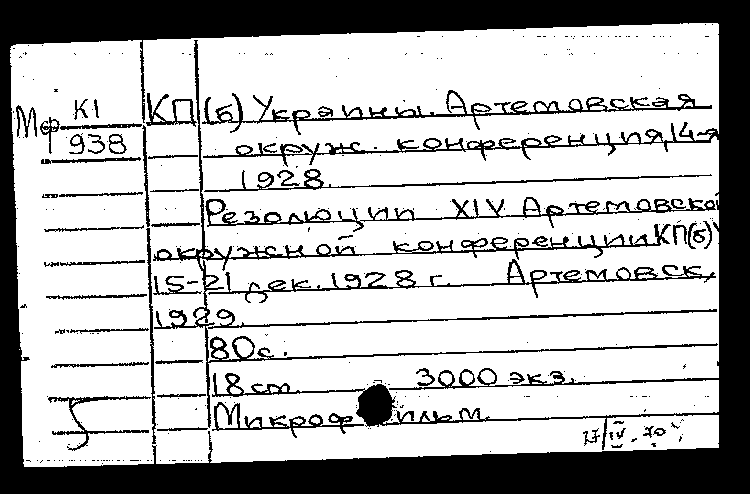 Мф К1
938
КП(б) Украины. Артемовская
окруж. конференция, 14-я
1928.
Резолюции XIV Артемовской
окружной конференции КП(б)У
15-21 дек. 1928 г. Артемовск,
1929.
80с.
18 cm. 3000 экз.
Микрофильм
17/IV.